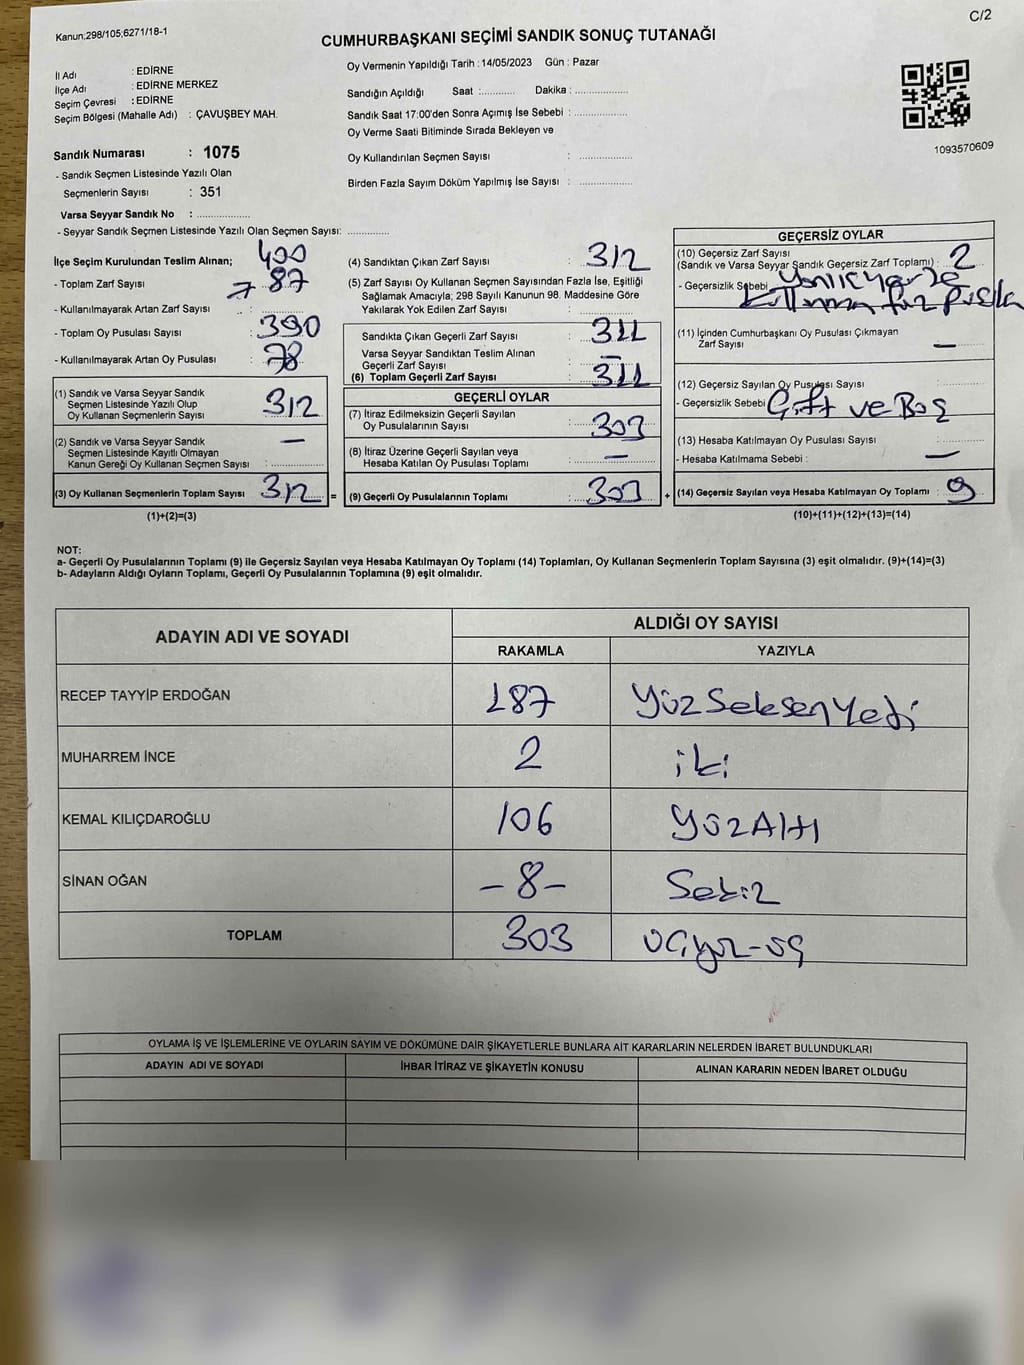 C/2
Kanun;298/105;6271/18-1
CUMHURBAŞKANI SEÇİMİ SANDIK SONUÇ TUTANAĞI
İl Adı : EDİRNE
İlçe Adı : EDİRNE MERKEZ
Seçim Çevresi : EDİRNE
Seçim Bölgesi (Mahalle Adı) : ÇAVUŞBEY MAH.
Sandık Numarası : 1075
- Sandık Seçmen Listesinde Yazılı Olan
Seçmenlerin Sayısı : 351
Varsa Seyyar Sandık No : ..................
- Seyyar Sandık Seçmen Listesinde Yazılı Olan Seçmen Sayısı: ..............
Oy Vermenin Yapıldığı Tarih : 14/05/2023 Gün : Pazar
Sandığın Açıldığı Saat :............ Dakika : ..................
Sandık Saat 17:00'den Sonra Açımış İse Sebebi : ..................
Oy Verme Saati Bitiminde Sırada Bekleyen ve
Oy Kullandırılan Seçmen Sayısı : ..................
Birden Fazla Sayım Döküm Yapılmış İse Sayısı : ..................
1093570609
İlçe Seçim Kurulundan Teslim Alınan; 400
- Toplam Zarf Sayısı 87
- Kullanılmayarak Artan Zarf Sayısı :
- Toplam Oy Pusulası Sayısı : 390
- Kullanılmayarak Artan Oy Pusulası : 78
(1) Sandık ve Varsa Seyyar Sandık
Seçmen Listesinde Yazılı Olup
Oy Kullanan Seçmenlerin Sayısı : 312
(2) Sandık ve Varsa Seyyar Sandık
Seçmen Listesinde Kayıtlı Olmayan
Kanun Gereği Oy Kullanan Seçmen Sayısı : —
(3) Oy Kullanan Seçmenlerin Toplam Sayısı : 312
=
(1)+(2)=(3)
(4) Sandıktan Çıkan Zarf Sayısı : 312
(5) Zarf Sayısı Oy Kullanan Seçmen Sayısından Fazla İse, Eşitliği
Sağlamak Amacıyla; 298 Sayılı Kanunun 98. Maddesine Göre
Yakılarak Yok Edilen Zarf Sayısı :
Sandıkta Çıkan Geçerli Zarf Sayısı : 311
Varsa Seyyar Sandıktan Teslim Alınan
Geçerli Zarf Sayısı : —
(6) Toplam Geçerli Zarf Sayısı : 311
GEÇERLİ OYLAR
(7) İtiraz Edilmeksizin Geçerli Sayılan
Oy Pusulalarının Sayısı : 303
(8) İtiraz Üzerine Geçerli Sayılan veya
Hesaba Katılan Oy Pusulası Toplamı : —
(9) Geçerli Oy Pusulalarının Toplamı : 303
+
GEÇERSİZ OYLAR
(10) Geçersiz Zarf Sayısı
(Sandık ve Varsa Seyyar Sandık Geçersiz Zarf Toplamı) : 2
- Geçersizlik Sebebi
(11) İçinden Cumhurbaşkanı Oy Pusulası Çıkmayan
Zarf Sayısı : —
(12) Geçersiz Sayılan Oy Pusulası Sayısı :
- Geçersizlik Sebebi Çift ve Boş
(13) Hesaba Katılmayan Oy Pusulası Sayısı :
- Hesaba Katılmama Sebebi : —
(14) Geçersiz Sayılan veya Hesaba Katılmayan Oy Toplamı : 9
(10)+(11)+(12)+(13)=(14)
NOT:
a- Geçerli Oy Pusulalarının Toplamı (9) ile Geçersiz Sayılan veya Hesaba Katılmayan Oy Toplamı (14) Toplamları, Oy Kullanan Seçmenlerin Toplam Sayısına (3) eşit olmalıdır. (9)+(14)=(3)
b- Adayların Aldığı Oyların Toplamı, Geçerli Oy Pusulalarının Toplamına (9) eşit olmalıdır.
ADAYIN ADI VE SOYADI ALDIĞI OY SAYISI
RAKAMLA YAZIYLA
RECEP TAYYİP ERDOĞAN 187 Yüz Seksen Yedi
MUHARREM İNCE 2 iki
KEMAL KILIÇDAROĞLU 106 yüz Altı
SİNAN OĞAN -8- Sekiz
TOPLAM 303 üçyüz-üç
OYLAMA İŞ VE İŞLEMLERİNE VE OYLARIN SAYIM VE DÖKÜMÜNE DAİR ŞİKAYETLERLE BUNLARA AİT KARARLARIN NELERDEN İBARET BULUNDUKLARI
ADAYIN ADI VE SOYADI İHBAR İTİRAZ VE ŞİKAYETİN KONUSU ALINAN KARARIN NEDEN İBARET OLDUĞU